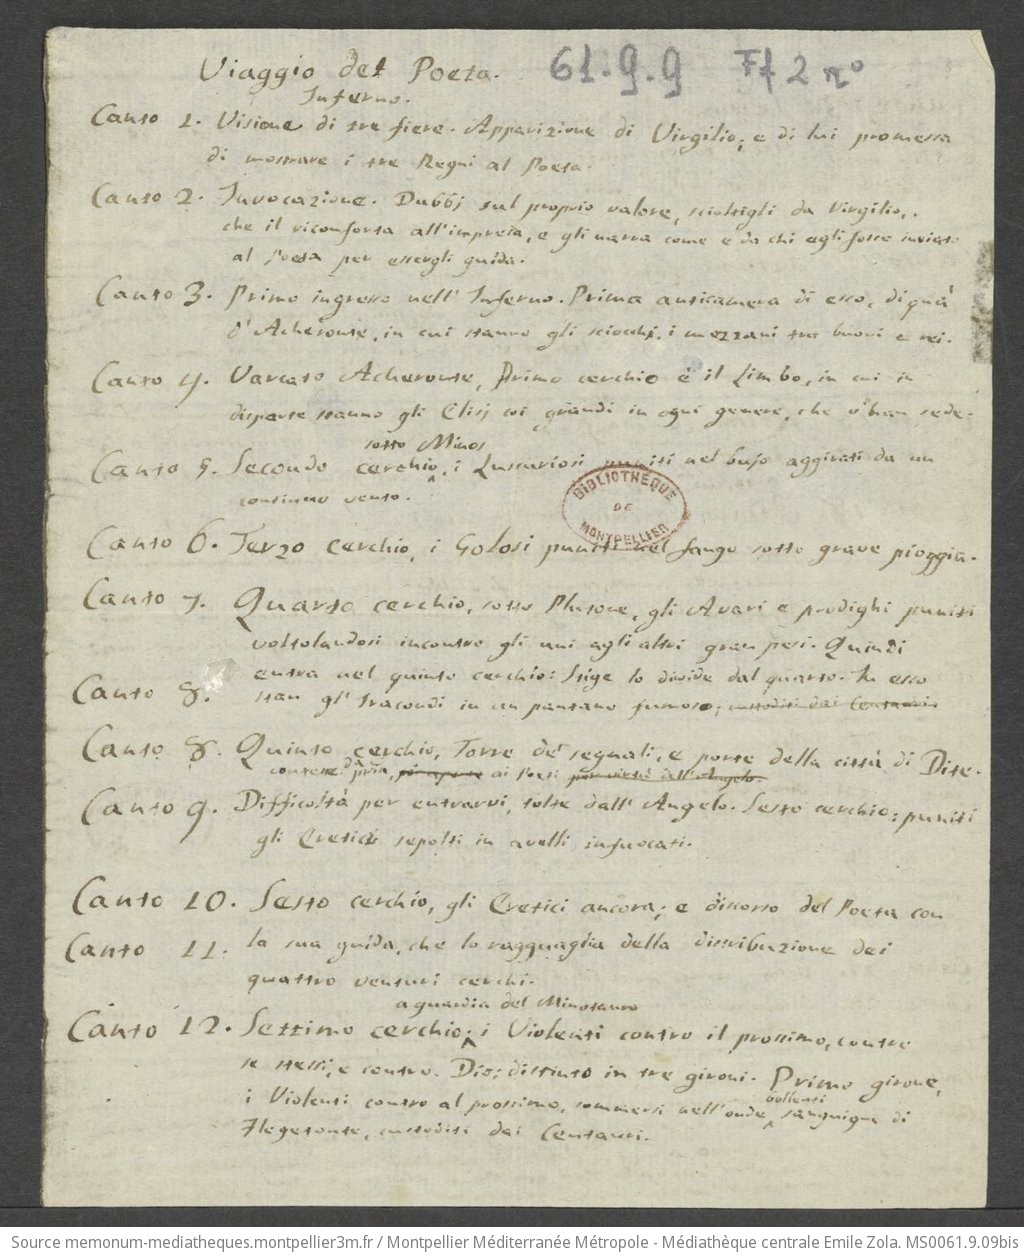 Viaggio del Poeta.
61.9.9 Ff 2 nº
Inferno.
Canto 1. Visione di tre fiere. Apparizione di Virgilio; e di lui promessa
di mostrare i tre Regni al Poeta.
Canto 2. Invocazione. Dubbj sul proprio valore, scioltigli da Virgilio,
che il riconforta all'impresa, e gli narra come e da chi egli fosse inviato
al Poeta per essergli guida.
Canto 3. Primo ingresso nell' Inferno. Prima anticamera di esso, di quà
d'Acheronte, in cui stanno gli sciocchi, i mezzani tra buoni e rei.
Canto 4. Varcato Acheronte, Primo cerchio è il Limbo, in cui in
disparte stanno gli Elisj coi grandi in ogni genere, che v'han sede.
sotto Minos
Canto 5. Secondo cerchio, i Lussuriosi puniti nel bujo aggirati da un
continuo vento.
BIBLIOTHÈQUE DE MONTPELLIER
Canto 6. Terzo cerchio, i Golosi puniti nel fango sotto grave pioggia.
Canto 7. Quarto cerchio, sotto Plutone, gli Avari e prodighi puniti
voltolandosi incontro gli uni agli altri gran pesi. Quindi
entra nel quinto cerchio: Stige lo divide dal quarto. In esso
Canto 8. stan gl' Iracondi in un pantano fumoso; custoditi dai Centauri
Canto 8. Quinto cerchio, Torre de' segnali, e porte della città di Dite.
contese pria, ai Poeti per virtù dell'Angelo.
Canto 9. Difficoltà per entrarvi, tolte dall' Angelo. Sesto cerchio: puniti
gli Eretici sepolti in avelli infuocati.
Canto 10. Sesto cerchio, gli Eretici ancora; e discorso del Poeta con
Canto 11. la sua guida, che lo ragguaglia della distribuzione dei
quattro venturi cerchi.
a guardia del Minotauro
Canto 12. Settimo cerchio; i Violenti contro il prossimo, contro
se stessi, e contro Dio; distinto in tre gironi. Primo girone,
bollenti
i Violenti contro al prossimo, sommersi nell'onde sanguigne di
Flegetonte, custoditi dai Centauri.
Source memonum-mediatheques.montpellier3m.fr / Montpellier Méditerranée Métropole - Médiathèque centrale Emile Zola. MS0061.9.09bis